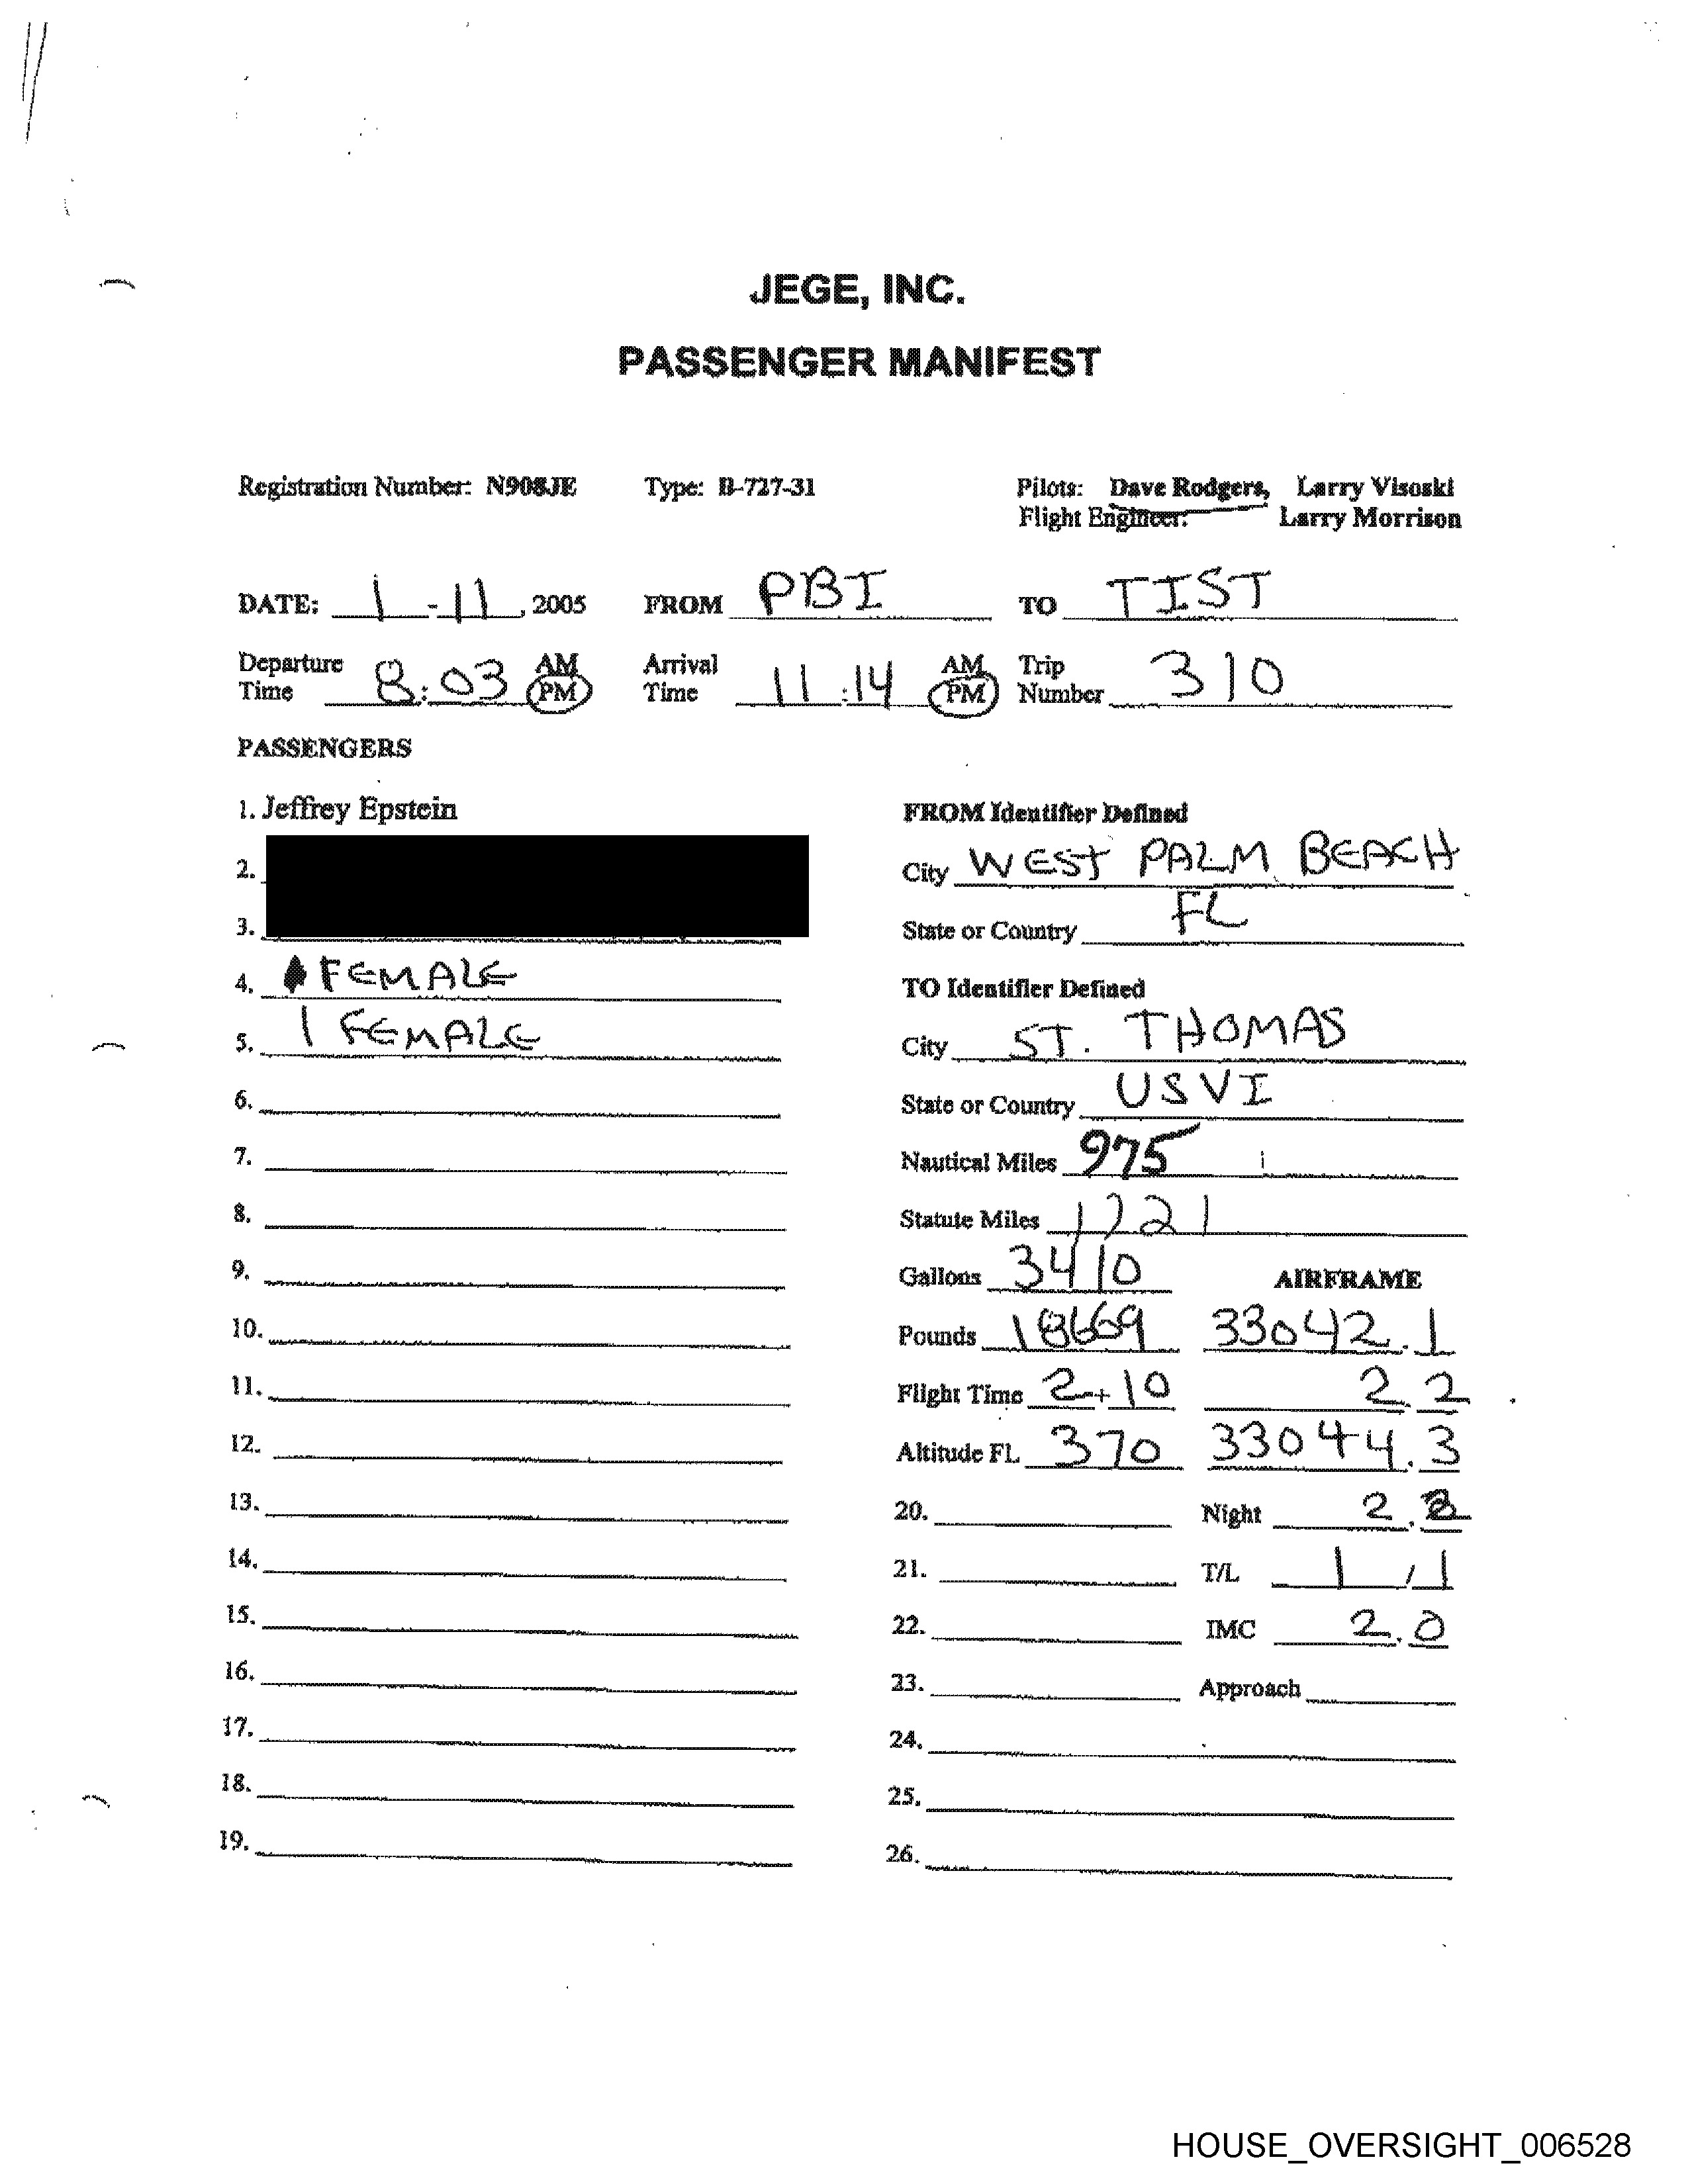 JEGE, INC.
PASSENGER MANIFEST
Registration Number: N908JE Type: B-727-31 Pilots: Dave Rodgers, Larry Visoski
Flight Engineer: Larry Morrison
DATE: 1-11, 2005 FROM PBI TO TIST
Departure Time 8:03 AM PM Arrival Time 11:14 AM PM Trip Number 310
PASSENGERS
1. Jeffrey Epstein FROM Identifier Defined
2. City WEST PALM BEACH
3. State or Country FL
4. FEMALE TO Identifier Defined
5. 1 FEMALE City ST. THOMAS
6. State or Country USVI
7. Nautical Miles 975
8. Statute Miles
9. Gallons 3410 AIRFRAME
10. Pounds 18669 33042.1
11. Flight Time 2+10 2.2
12. Altitude FL 370 33044.3
13. 20. Night
14. 21. T/L 1/1
15. 22. IMC 2.0
16. 23. Approach
17. 24.
18. 25.
19. 26.
HOUSE_OVERSIGHT_006528